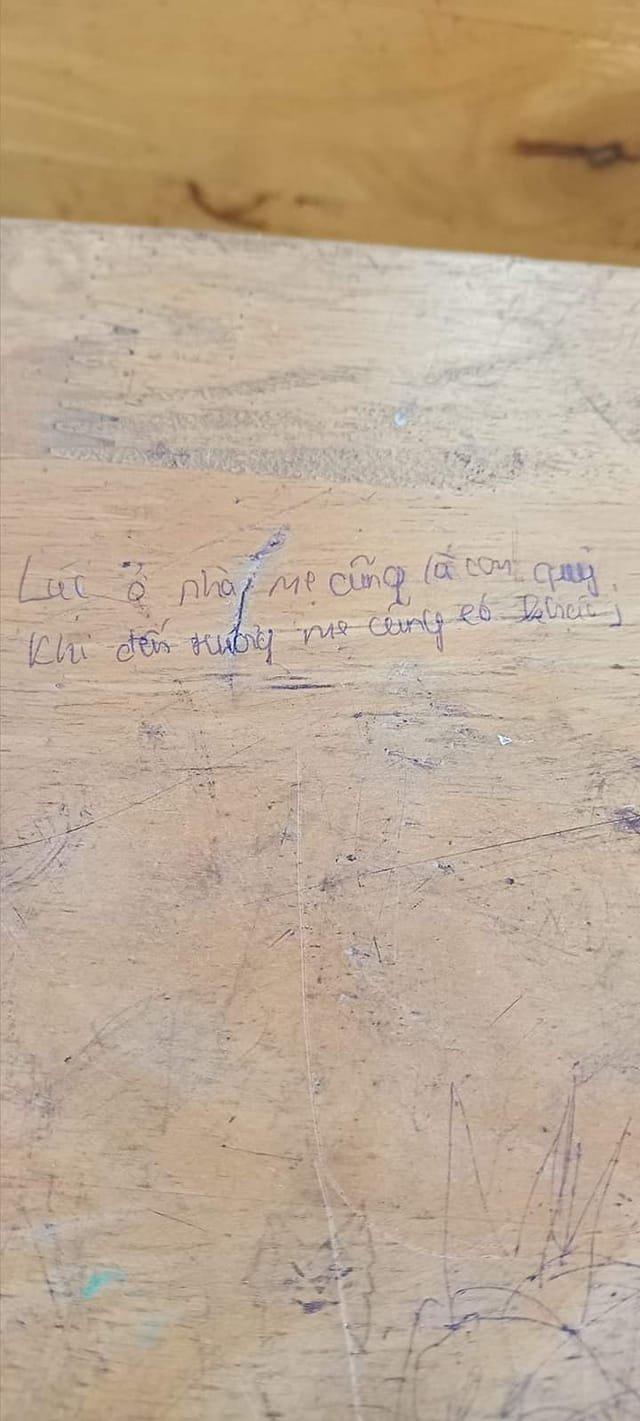 Lúc ở nhà mẹ cũng là con quỷ
Khi đến trường mẹ cũng có khác